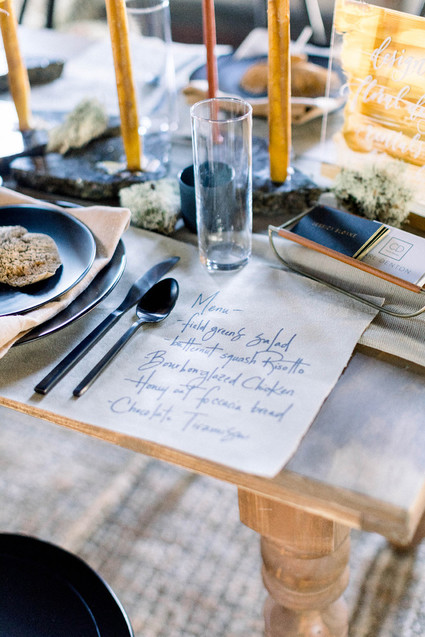 design
Menu -
-field greens salad
butternut squash Risotto
Bourbon glazed Chicken
Honey nut foccacia bread
-Chocolate Tiramisu